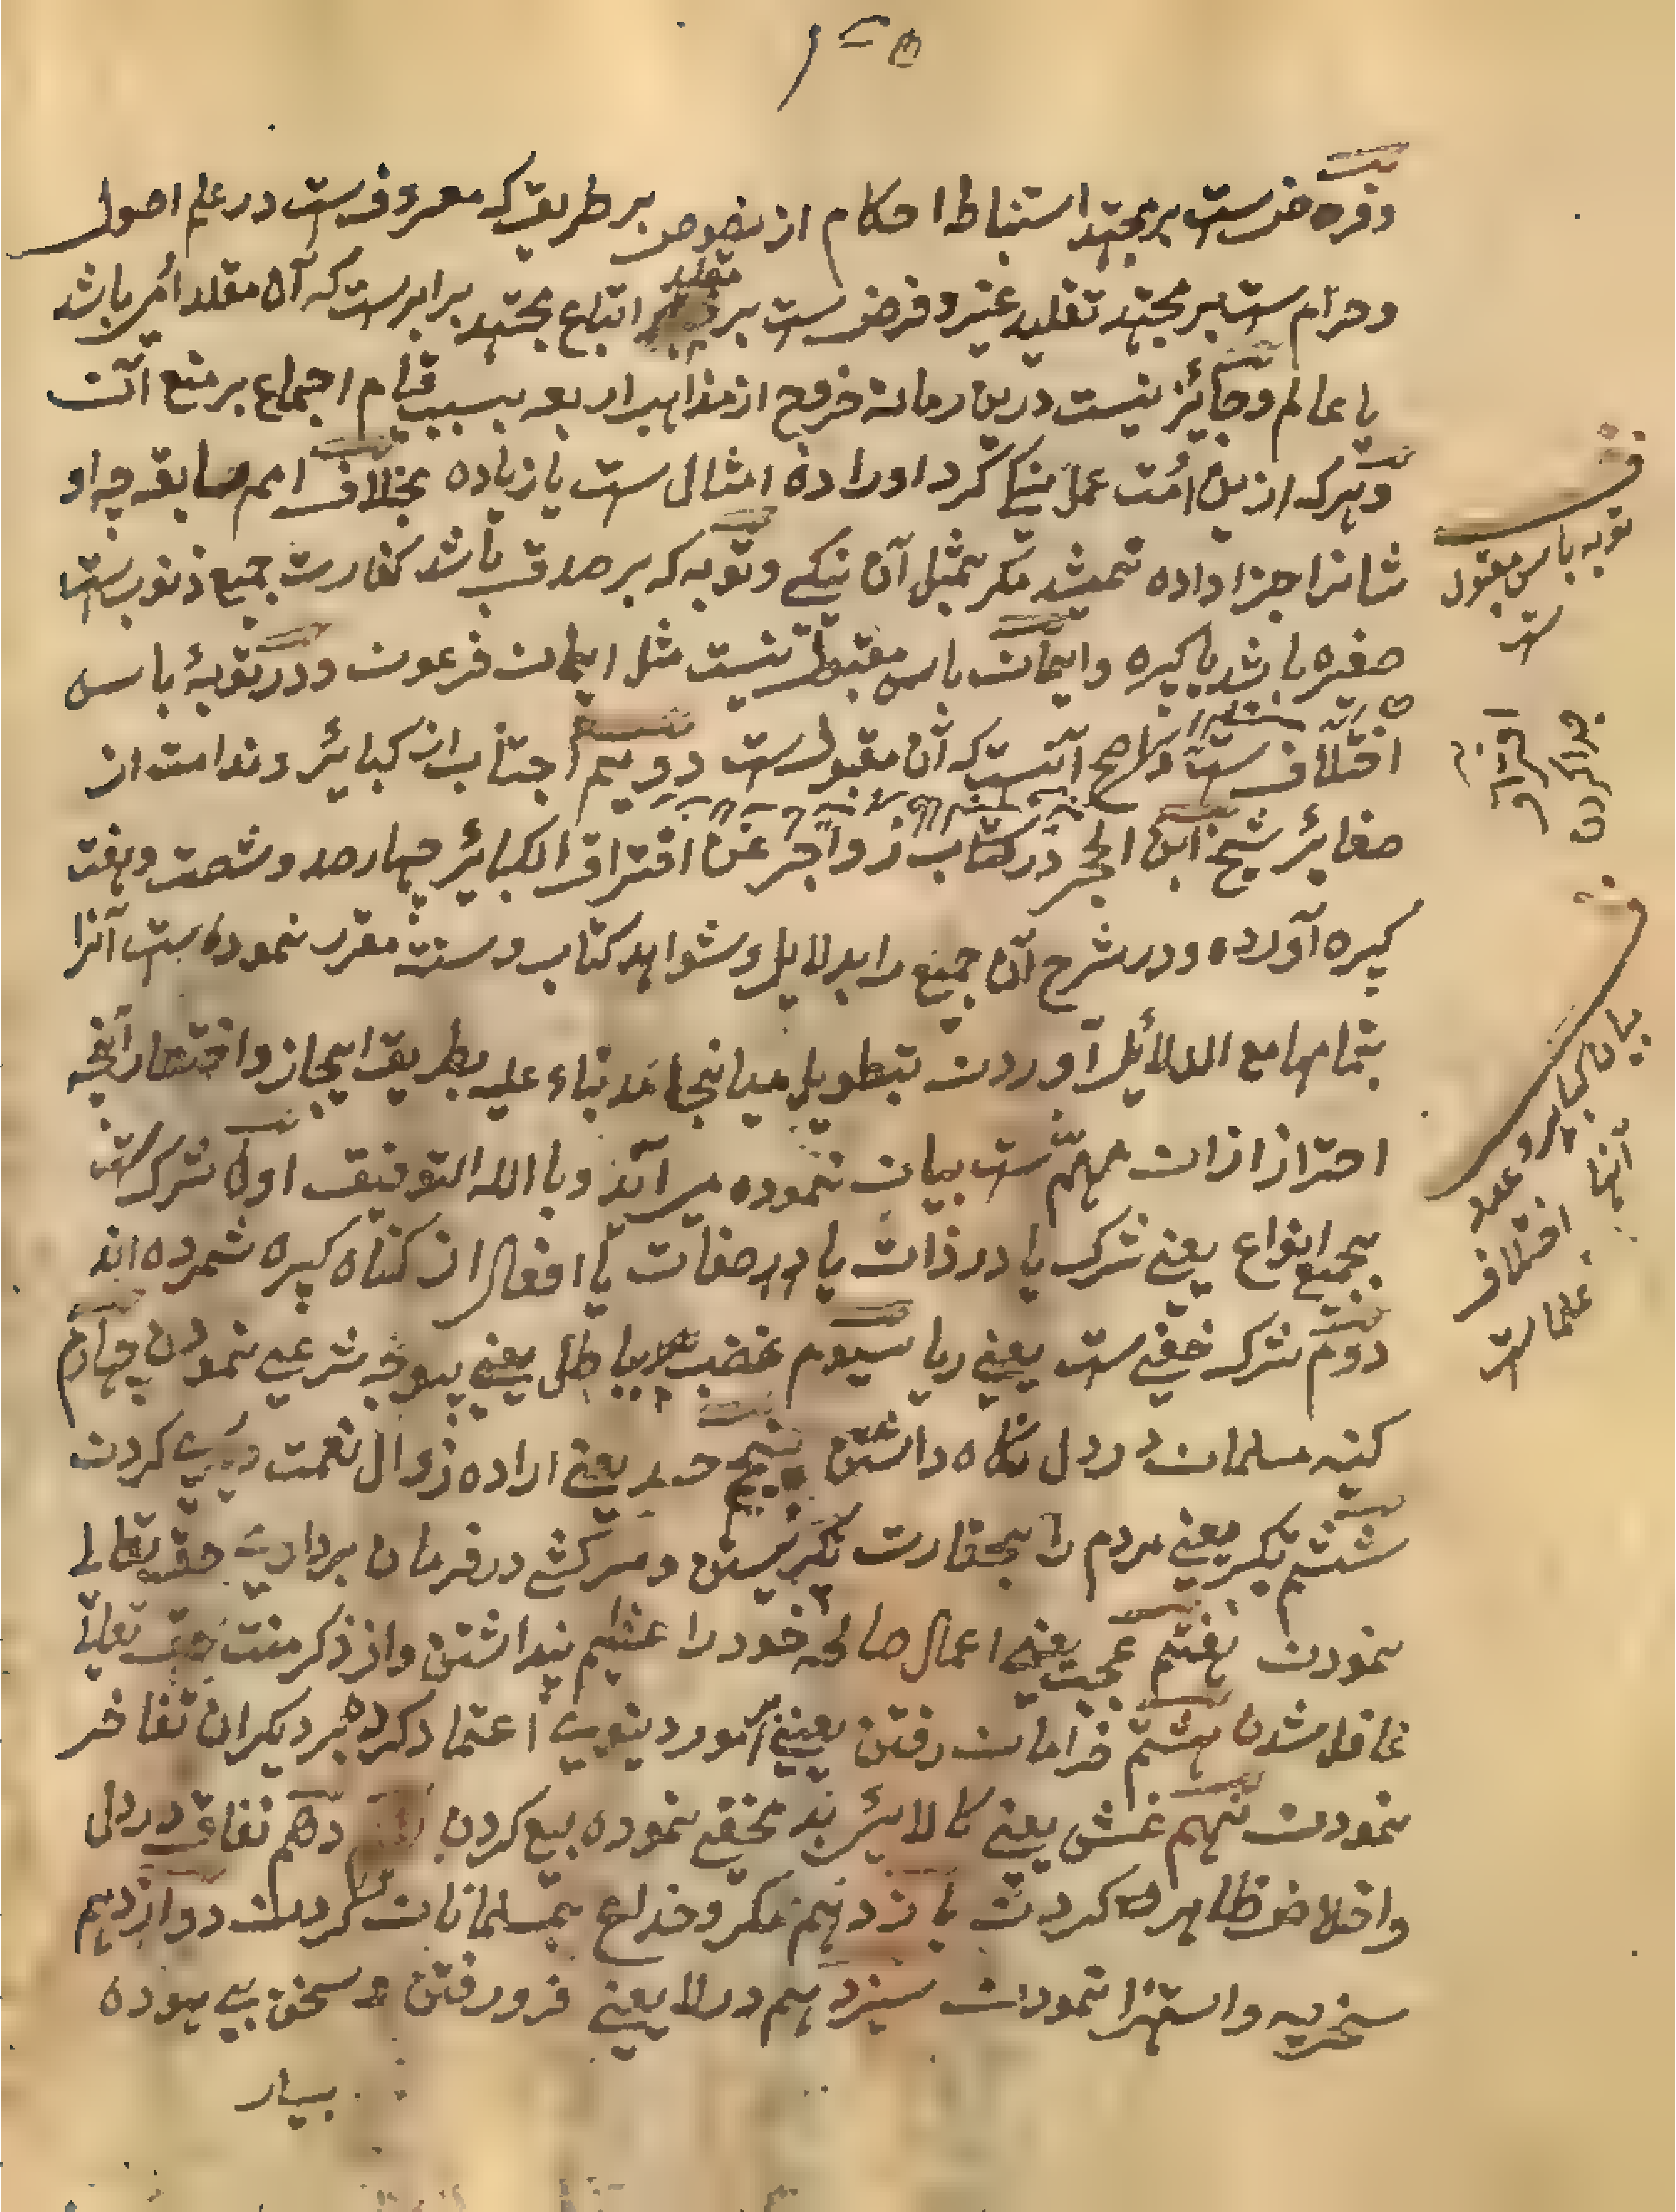 ۱۴۵
و فرض ست بر مجتهد استنباط احکام از نصوص بر طریق که معروف ست در علم اصول
و حرام ست بر مجتهد تقلید غیر و فرض ست بر مقلد اتباع مجتهد برابر ست که آن مقلد امی باشد
یا عالم و جائز نیست درین زمانه خروج از مذاهب اربعه بسبب قیام اجماع بر منع آن
و هر که ازین امت عمل نیک کرد او را ده امثال ست یا زیاده بخلاف امم سابقه چه او
شانرا جزا داده نمیشد مکر بمثل آن نیکی و توبه که بر صدق باشد کفارت جمیع ذنوب ست
صغیره باشد یا کبیره و ایمان باس مقبول نیست مثل ایمان فرعون و در توبهٔ باس
اختلاف ست و اصح آنست که آن مقبول ست دویم اجتناب از کبایر و ندامت از
صغایر شیخ ابن الحجر در کتاب زواجر عن اقتراف الکبایر چهار صد و شصت و هفت
کبیره آورده و در شرح آن جمیع را بدلایل و شواهد کتاب و سنت مقرر نموده ست آنرا
بتمامها مع الدلائل آوردن بتطویل میانجامد بناء علیه بطریق ایجاز و اختصار آنچه
احتراز ازان مهم ست بیان نموده می آید و بالله التوفیق اول شرک ست
بجمیع انواع یعنی شرک یا در ذات یا در صفات یا افعال از کناه کبیره شمرده اند
دوم شرک خفی ست یعنی ریا سیوم غضب بباطل یعنی بیوجه شرعی نمودن چهارم
کینه مسلمان در دل نکاه داشتن پنجم حسد یعنی اراده زوال نعمت دیگری کردن
ششم تکبر یعنی مردم را بحقارت نگریستن و سرکشی در فرمان برداری حق تعالی
نمودن هفتم عجب یعنی اعمال صالحه خود را عظیم پنداشتن و از ذکر منت حق تعالی
غافل شدن هشتم خرامان رفتن یعنی امور دینوی اعتماد کرده بر دیکران تفاخر
نمودن نهم غش یعنی کالای بد مخفی نموده بیع کردن دهم نفاق در دل
و اخلاص ظاهر کردن یازدهم مکر و خداع بمسلمانان کردن دوازدهم
سخریه و استهزا نمودن سیزدهم درلا یعنی فرو رفتن و سخن بیهوده
بسیار
ف
توبه باس مقبول
ست
اقتراف
جدا کردن
ف
بیان کبایر و عدد
آنها
اختلاف
علما ست